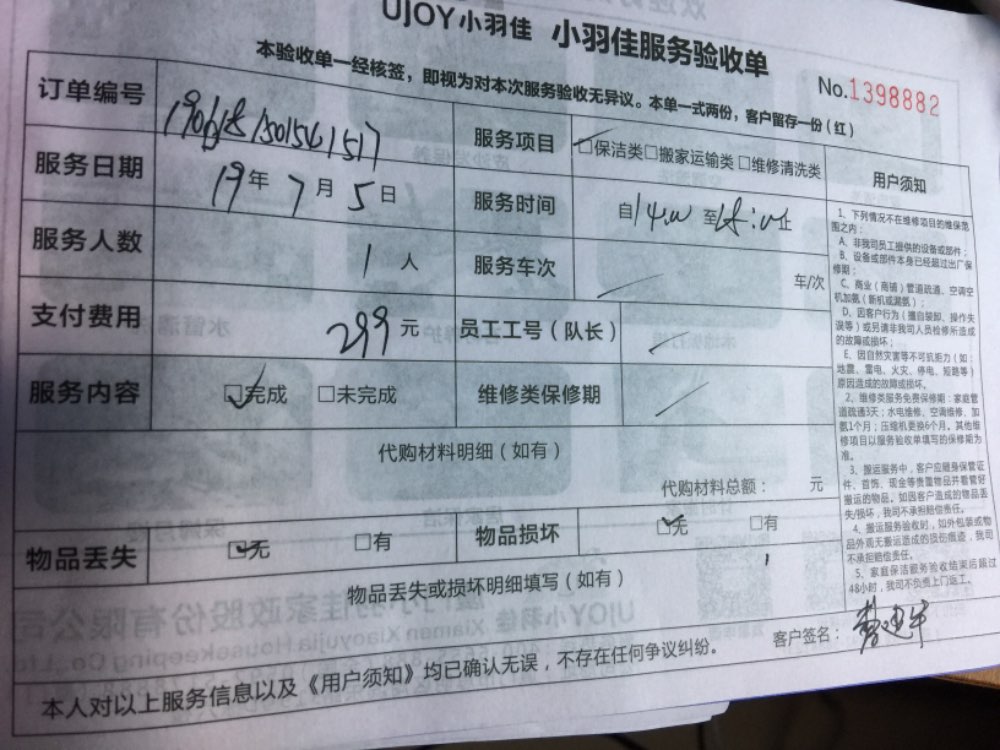 UJOY小羽佳 小羽佳服务验收单
本验收单一经核签，即视为对本次服务验收无异议。本单一式两份，客户留存一份（红）
No.1398882
订单编号 1906181501541517
服务项目 ☑保洁类 □搬家运输类 □维修清洗类
用户须知
服务日期 19年7月5日
服务时间 自14:00 至18:00止
服务人数 1人
服务车次 / 车/次
支付费用 299元
员工工号（队长） /
服务内容 ☑完成 □未完成
维修类保修期 /
代购材料明细（如有）
代购材料总额： 元
物品丢失 ☑无 □有
物品损坏 ☑无 □有
物品丢失或损坏明细填写（如有）
1、下列情况不在维修项目的维保范
围之内：
A、非我司员工提供的设备或部件；
B、设备或部件本身已经超过出厂保
修期；
C、商业（商铺）管道疏通、空调空
机加氨（新机或漏氨）；
D、因客户行为（擅自装卸、操作失
误等）或另请非我司人员检修所造成
的故障或损坏；
E、因自然灾害等不可抗拒力（如：
地震、雷电、火灾、停电、短路等）
原因造成的故障或损坏。
2、维修类服务免费保修期：家庭管
道疏通3天；水电维修、空调维修、加
氨1个月；压缩机更换6个月。其他维
修项目以服务验收单填写的保修期为
准。
3、搬运服务中，客户应随身保管证
件、首饰、现金等贵重物品并看管好
搬运的物品。如因客户造成的物品丢
失/损坏，我司不承担赔偿责任。
4、搬运服务验收时，如外包装或物
品外观无搬运造成的损伤痕迹，我司
不承担赔偿责任。
5、家庭保洁服务验收结束后超过
48小时，我司不负责上门返工。
客户签名：
本人对以上服务信息以及《用户须知》均已确认无误，不存在任何争议纠纷。